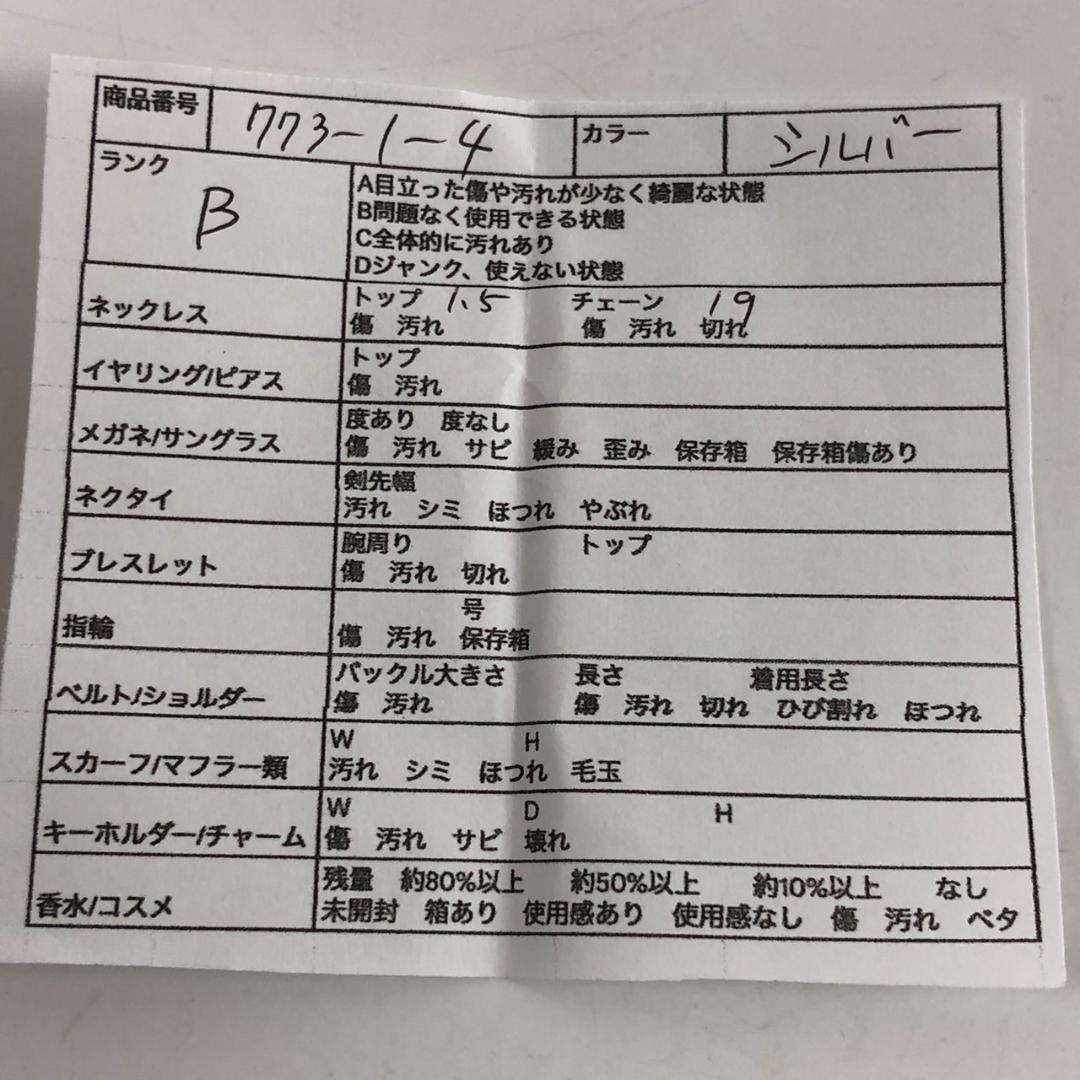 商品番号 773-1-4 カラー シルバー
ランク B
A目立った傷や汚れが少なく綺麗な状態
B問題なく使用できる状態
C全体的に汚れあり
Dジャンク、使えない状態
ネックレス
トップ 1.5 チェーン 19
傷 汚れ 傷 汚れ 切れ
イヤリング/ピアス
トップ
傷 汚れ
メガネ/サングラス
度あり 度なし
傷 汚れ サビ 緩み 歪み 保存箱 保存箱傷あり
ネクタイ
剣先幅
汚れ シミ ほつれ やぶれ
ブレスレット
腕周り トップ
傷 汚れ 切れ
指輪
号
傷 汚れ 保存箱
ベルト/ショルダー
バックル大きさ 長さ 着用長さ
傷 汚れ 傷 汚れ 切れ ひび割れ ほつれ
スカーフ/マフラー類
W H
汚れ シミ ほつれ 毛玉
キーホルダー/チャーム
W D H
傷 汚れ サビ 壊れ
香水/コスメ
残量 約80%以上 約50%以上 約10%以上 なし
未開封 箱あり 使用感あり 使用感なし 傷 汚れ ベタ